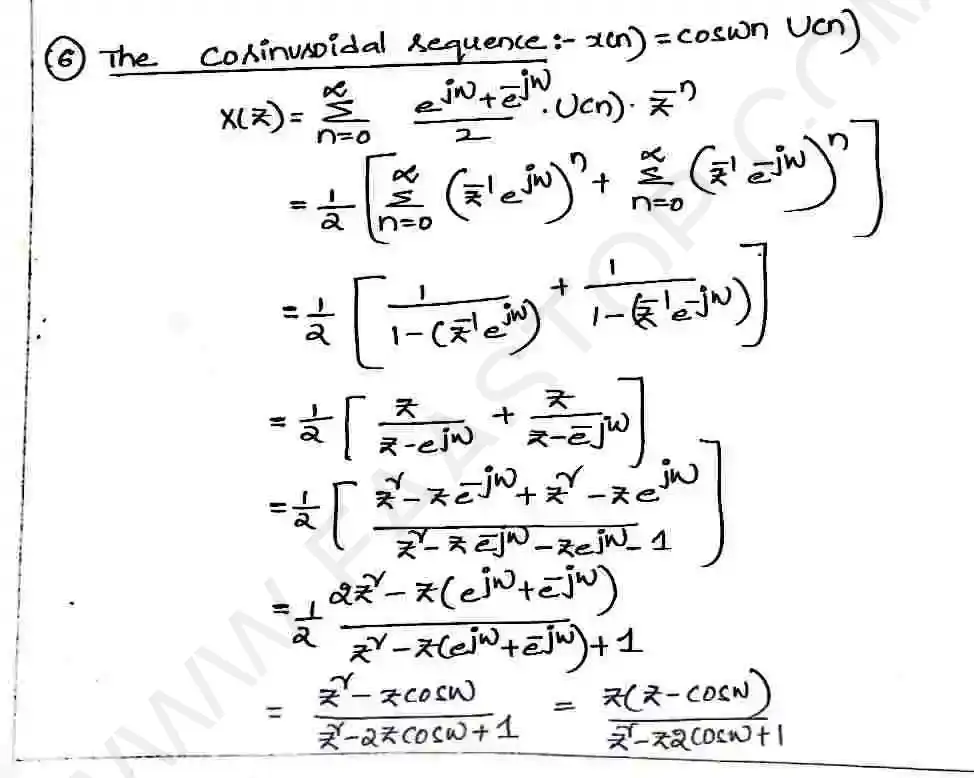 ⑥ The Cosinusoidal sequence :- x(n) = cosωn U(n)
X(z) = ∞Σn=0 (e^jω + e^-jω)/2 · U(n) · z^-n
= 1/2 [ ∞Σn=0 (z^-1 e^jω)^n + ∞Σn=0 (z^-1 e^-jω)^n ]
= 1/2 [ 1/(1-(z^-1 e^jω)) + 1/(1-(z^-1 e^-jω)) ]
= 1/2 [ z/(z-e^jω) + z/(z-e^-jω) ]
= 1/2 [ (z^2 - z e^-jω + z^2 - z e^jω)/(z^2 - z e^-jω - z e^jω - 1) ]
= 1/2 (2z^2 - z(e^jω + e^-jω))/(z^2 - z(e^jω + e^-jω) + 1)
= (z^2 - z cosω)/(z^2 - 2z cosω + 1) = z(z - cosω)/(z^2 - z2cosω + 1)